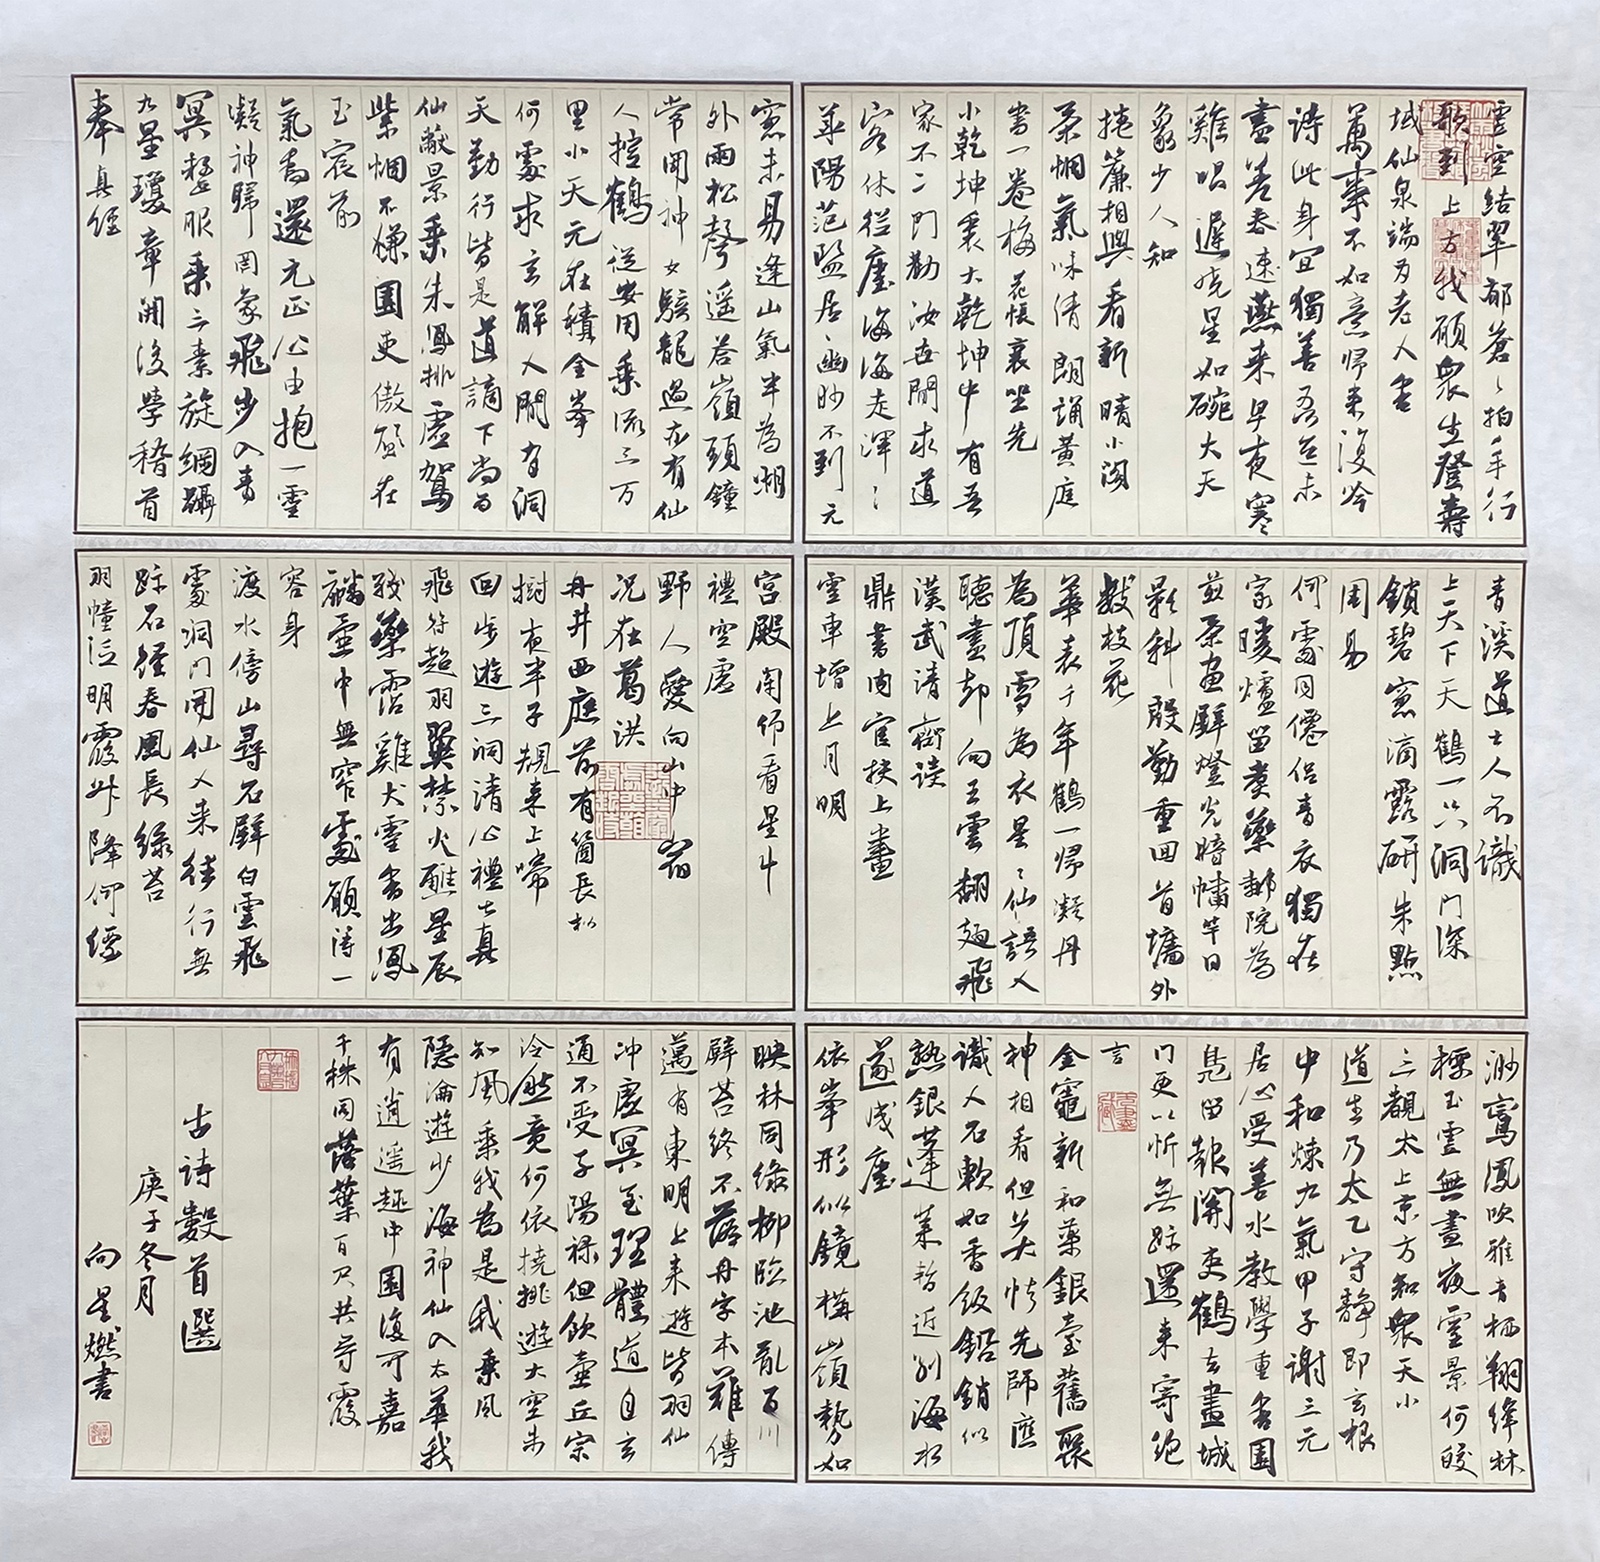 雲空結翠郁蒼〻拍手行
歌到上方我願衆生登壽
域仙泉端為老人香
萬事不如意歸來復吟
詩此身宜獨善吾道未
盡差春速燕來早夜寒
雞唱遲曉星如碗大天
象少人知
捲簾相與看新晴小閣
茶烟氣味清朗誦黃庭
書一卷梅花帳裏坐先
小乾坤裏大乾坤中有吾
家不二門勸汝世間求道
客休從塵海海走渾〻
華陽范監居幽眇不到元
窓未易逢山氣半為湖
外雨松聲遥答嶺頭鐘
常聞神女騎龍過亦有仙
人控鶴從安用乘流三万
里小天元在積金峯
何處求玄解人間有洞
天勤行皆是道謫下尚為
仙蔽景乘朱鳳排虛駕
紫烟不嫌園吏傲願在
玉宸前
氣為還元正心由抱一靈
凝神歸罔象飛步入青
冥整服乘三素旋綱躡
九星瓊章開後學稽首
奉真經
青溪道士人不識
上天下天鶴一隻洞門深
鎖碧窓滴露研朱點
周易
何處同僊侣青衣獨在
家暖爐留煮藥鄰院為
煎茶畫壁燈光暗幡竿日
影斜殷勤重回首墻外
數枝花
華表千年鶴一歸凝丹
為頂雪為衣星〻仙語人
聽盡却向五雲翻翅飛
漢武清齋讀
鼎書内官扶上畫
雲車壇上月明
宮殿閉仰看星斗
禮空虛
野人愛向山中宿
况在葛洪
丹井西庭前有箇長松
樹夜半子規來上啼
回步遊三洞清心禮七真
飛符超羽翼焚火醮星辰
殘藥霑雞犬靈香出鳳
麟壺中無窄處願得一
容身
渡水傍山尋石壁白雲飛
處洞門開仙人来往行無
跡石徑春風長綠苔
羽幢泛明霞升降何縹
渺鸞鳳吹雅音栖翔絳林
標玉虛無晝夜靈景何皎
三觀太上京方知衆天小
道生乃太乙守静即玄根
中和煉九氣甲子謝三元
居心受善水教學重香園
鳧留報關吏鶴去畫城
門更以忻無跡還来寄絶
言
金竈新和藥銀臺舊聚
神相看但莫怯先師應
識人石軟如香飯鉛銷似
熟銀蓬萊暫近別海水
遂成塵
依峯形似鏡構嶺勢如
映林同綠柳臨池亂百川
碧苔終不落丹字本難傳
邁有東明上来遊皆羽仙
冲虛冥至理體道自玄
通不受子陽禄但飲壺丘宗
冷然竟何依撓挑遊大空未
知風乘我為是我乘風
隱淪遊少海神仙入太華我
有逍遥趣中園復可嘉
千株同落葉百尺共尋霞
古詩數首選
庚子冬月
向星燃書